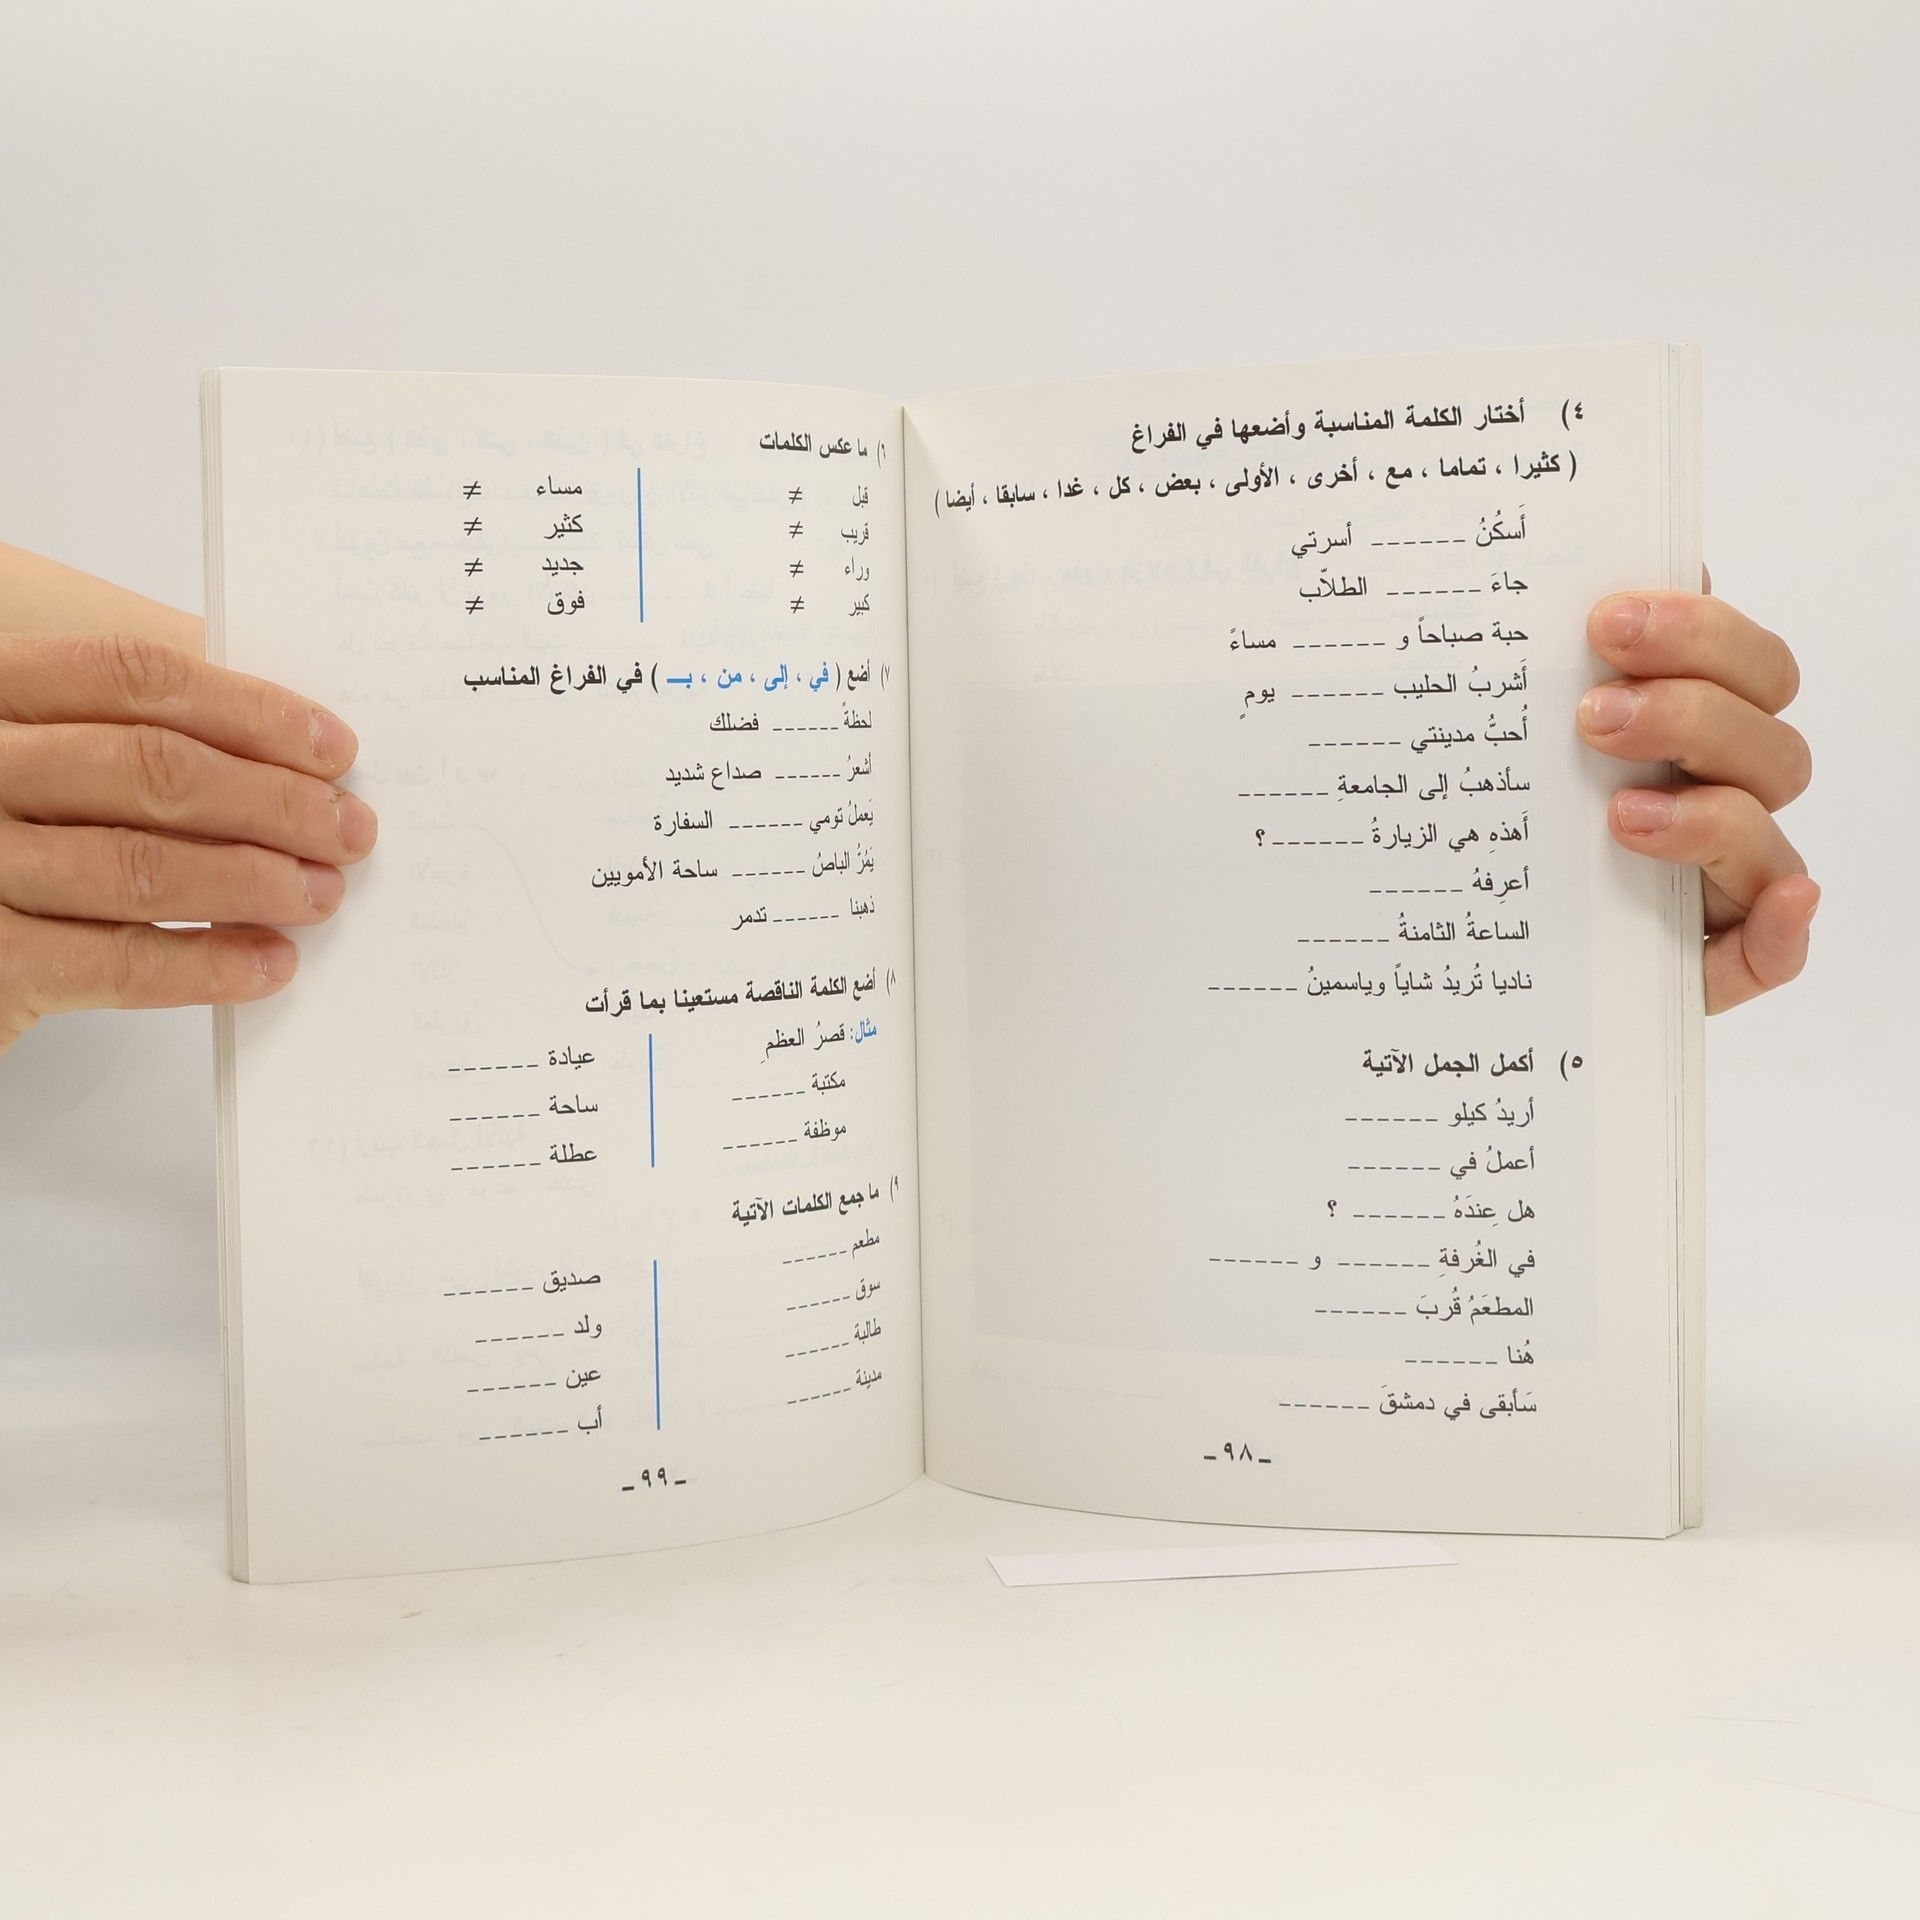 ٤) أختار الكلمة المناسبة وأضعها في الفراغ
( كثيرا ، تماما ، مع ، أخرى ، الأولى ، بعض ، كل ، غدا ، سابقا ، أيضا )
أَسكُنُ ______ أسرتي
جاءَ ______ الطلاّب
حبة صباحاً و ______ مساءً
أَشربُ الحليب ______ يومٍ
أُحبُّ مدينتي ______
سأذهبُ إلى الجامعةِ ______
أَهذهِ هي الزيارةُ ______ ؟
أعرِفهُ ______
الساعةُ الثامنةُ ______
ناديا تُريدُ شاياً وياسمينُ ______
٥) أكمل الجمل الآتية
أريدُ كيلو ______
أعملُ في ______
هل عِندَهُ ______ ؟
في الغُرفةِ ______ و ______
المطعَمُ قُربَ ______
هُنا ______
سَأبقى في دمشقَ ______
ـ ٩٨ ـ
٦) ما عكس الكلمات
قبل ≠ مساء ≠
قريب ≠ كثير ≠
وراء ≠ جديد ≠
كبير ≠ فوق ≠
٧) أضع ( في ، إلى ، من ، بـ ) في الفراغ المناسب
لحظةً ______ فضلك
أشعرُ ______ صداع شديد
يَعملُ تومي ______ السفارة
يَمُرُّ الباصُ ______ ساحة الأمويين
ذهبنا ______ تدمر
٨) أضع الكلمة الناقصة مستعينا بما قرأت
مثال: قصرُ العظمِ عيادة ______
مكتبة ______ ساحة ______
موظفة ______ عطلة ______
٩) ما جمع الكلمات الآتية
مطعم ______ صديق ______
سوق ______ ولد ______
طالبة ______ عين ______
مدينة ______ أب ______
ـ ٩٩ ـ